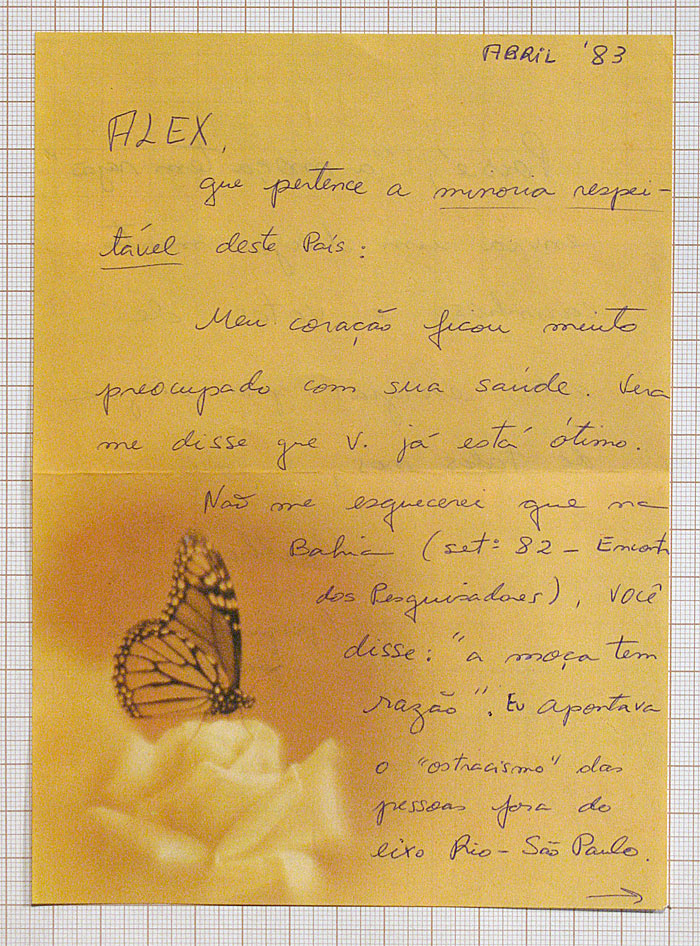 ABRIL '83
ALEX,
que pertence a minoria respei-
tável deste País:
Meu coração ficou muito
preocupado com sua saúde. Vera
me disse que V. já está ótimo.
Não me esquecerei que na
Bahia (setº 82 - Encont
dos Pesquisadores), VOCÊ
disse: "a moça tem
razão". Eu apontava
o "ostracismo" das
pessoas fora do
eixo Rio-São Paulo.
→